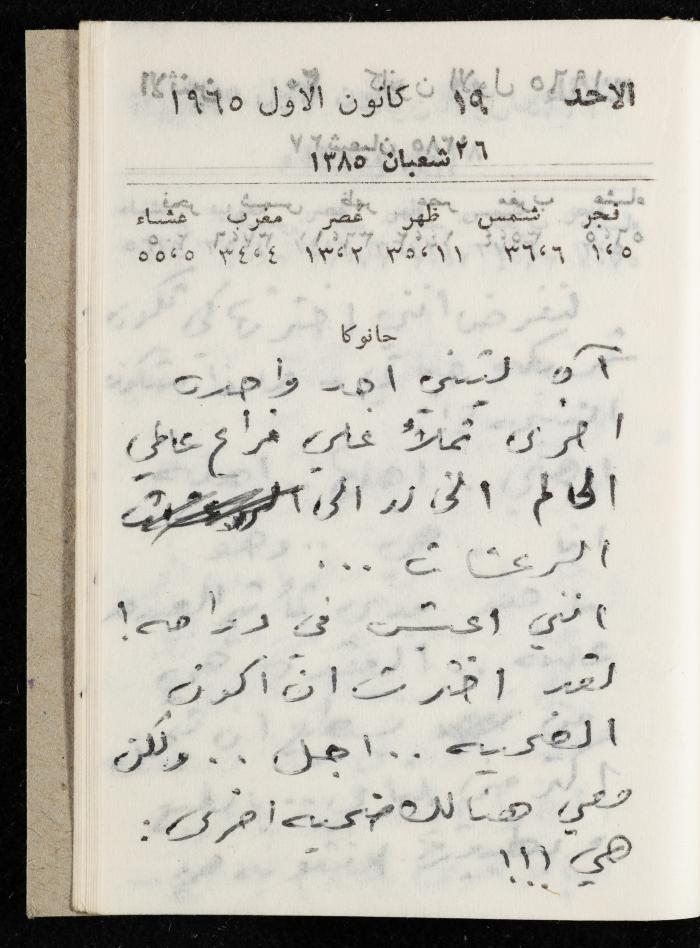 الاحد ١٩ كانون الاول ١٩٦٥
٢٦ شعبان ١٣٨٥
فجر شمس ظهر عصر مغرب عشاء
١،٥ ٣٦،٦ ٣٥،١١ ١٣،٢ ٣٤،٤ ٥٥،٥
حانوكا
آه ليتني اجد واحدة
اخرى تملأ علي فراغ عالمي
الحالم الى
الرعشات ...
انني اعيش في دوامه!
لقد اخترت ان اكون
الضحيه .. اجل .. ولكن
معي هنالك ضحيه اخرى :
هي !!!